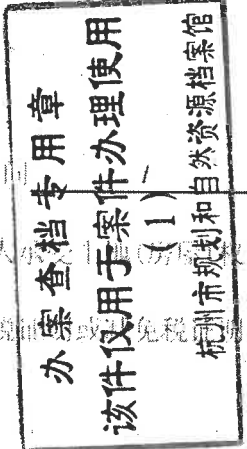 办案查档专用章
该件仅用于案件办理使用
（1）
杭州市规划和自然资源档案馆